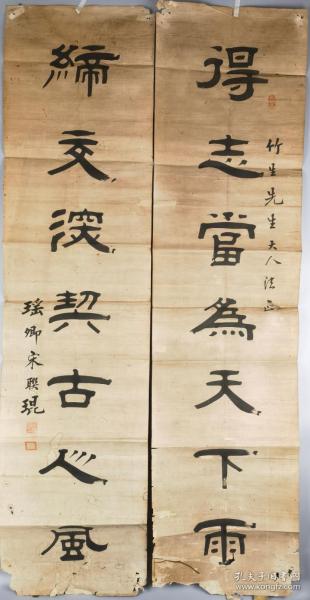 得志當為天下雨
竹生先生大人法正
締交深契古人風
瑤卿宋聯琨
孔夫子旧书网